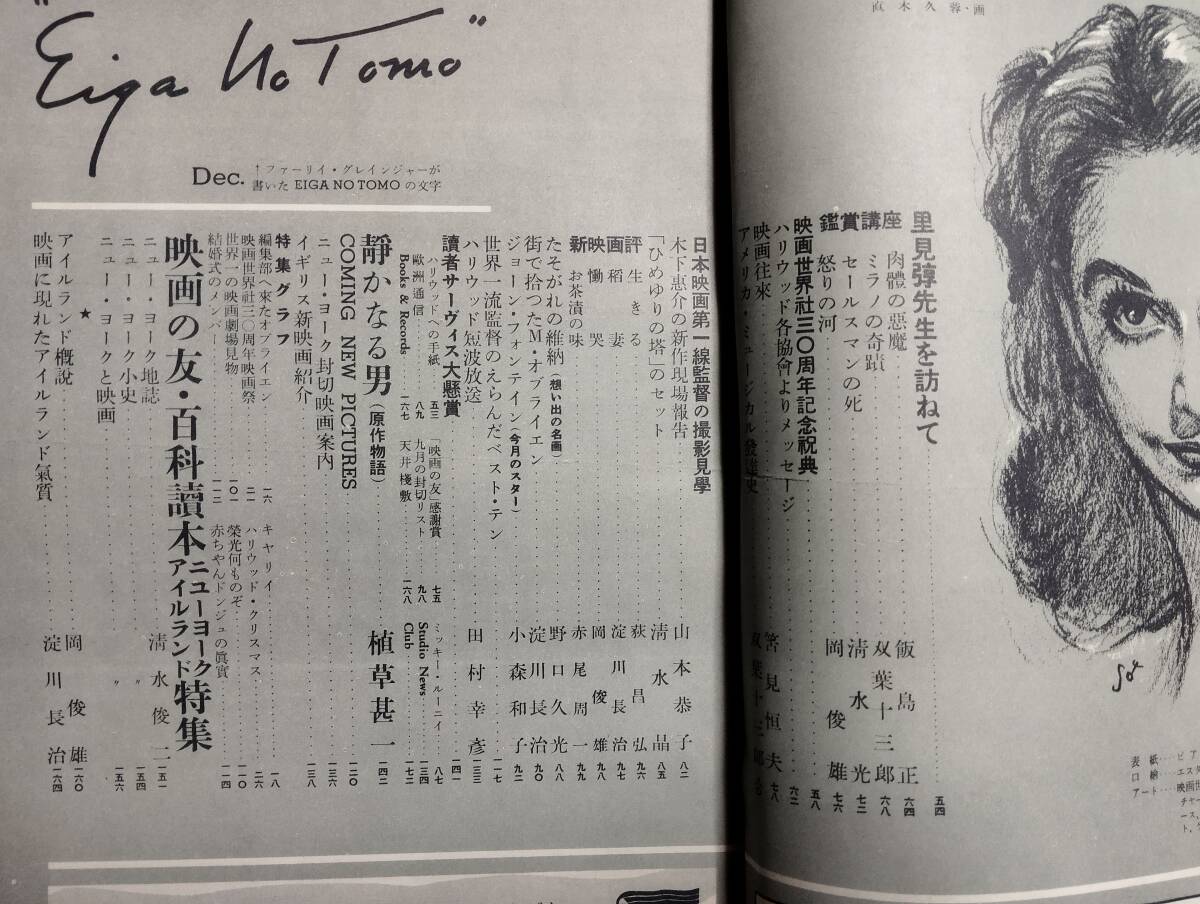 "Eiga No Tomo"
Dec.
↑ファーリイ・グレインジャーが
書いた EIGA NO TOMO の文字
直木久蓉・画
里見弴先生を訪ねて……五四
鑑賞講座
肉體の惡魔……飯島正 六四
ミラノの奇蹟……双葉十三郎 六八
セールスマンの死……清水光 七二
怒りの河……岡俊雄 七六
映画世界社三〇周年記念祝典……五八
ハリウッド各協會よりメッセージ……六二
映画往來……筈見恒夫 七八
アメリカ・ミュージカル發達史……双葉十三郎
日本映画第一線監督の撮影見學
木下惠介の新作現場報告……山本恭子 八二
「ひめゆりの塔」のセット……清水晶 八五
新映画評
生きる……荻昌弘 九六
稻妻……淀川長治 九八
慟哭……岡俊雄 九九
お茶漬の味……赤尾周一
たそがれの維納(想い出の名画)……野口久光 八八
街で拾つたM・オブライエン……淀川長治 九〇
ジョーン・フォンテイン(今月のスター)……小森和子 九二
世界一流監督のえらんだベスト・テン
ハリウッド短波放送……田村幸彦 一三三
讀者サーヴィス大懸賞……一四一
ハリウッドへの手紙 五三
「映画の友」感謝賞 七五
ミッキー・ルーニイ 八七
歐洲通信 八九
九月の封切リスト 九八
Studio News 一三四
Books & Records 一六七
天井棧敷 一六八
Club 一七二
靜かなる男(原作物語) 植草甚一 一四二
COMING NEW PICTURES……一二〇
ニュー・ヨーク封切映画案内……一三八
イギリス新映画紹介……一三六
特集グラフ
編集部へ來たオブライエン……一六
キャリイ……一八
映画世界社三〇周年映画祭……二一
ハリウッド・クリスマス……二六
世界一の映画劇場見物……一〇一
榮光何ものぞ……一一四
結婚式のメンバー……一一二
赤ちやんドンジュの眞實……一四〇
映画の友・百科讀本 ニューヨーク アイルランド 特集
ニュー・ヨーク地誌……清水俊二 一五一
ニュー・ヨーク小史……〃 一五四
ニュー・ヨークと映画……〃 一五六
★
アイルランド概説……岡俊雄 一六〇
映画に現れたアイルランド氣質……淀川長治 一六四
表紙……ピア
口繪……エス
アート……映画世
チャー
ース、
ト、